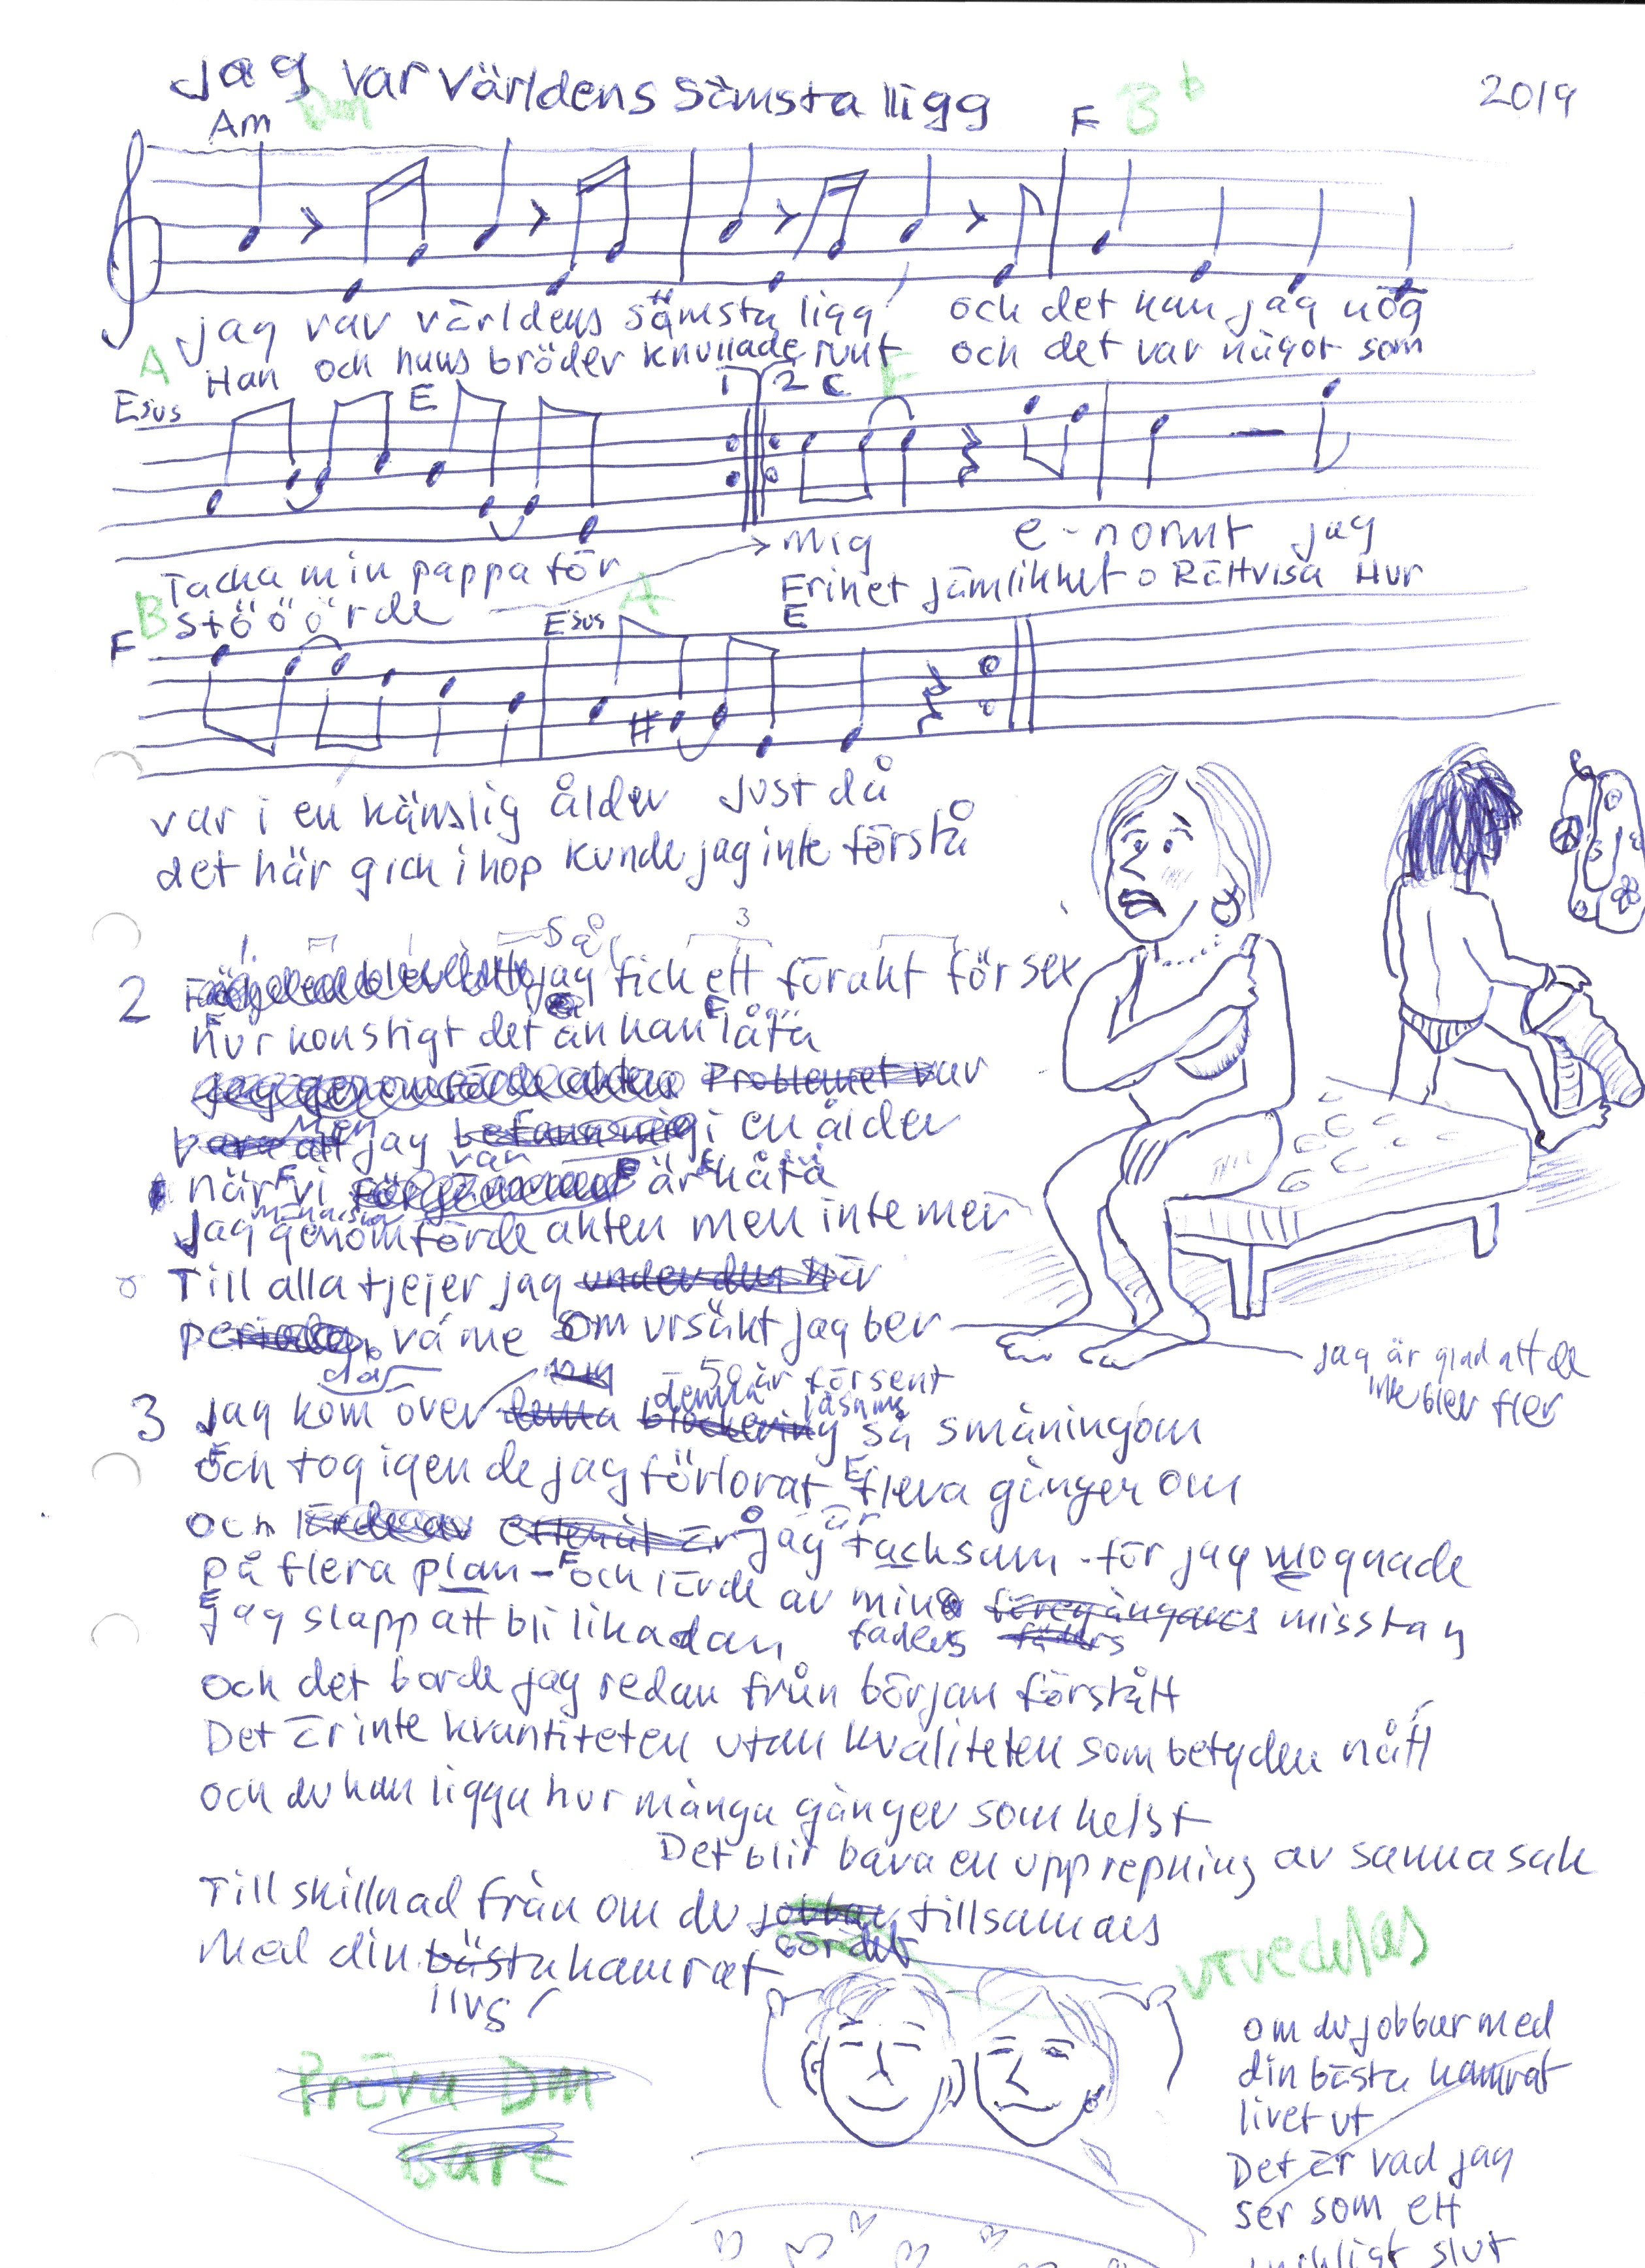 Jag var världens sämsta ligg
2019
Am Dm F Bb
Jag var världens sämsta ligg och det kan jag nog
Han och hans bröder knullade runt och det var något som
A E 1 2 C F
Esus
Tacka min pappa för mig e-normt jag
stöööörde Frihet jämlikhet o Rättvisa Hur
B
F Esus A E
var i en känslig ålder just då
det här gick ihop kunde jag inte förstå
2 så jag fick ett förakt för sex
Hur konstigt det än kan låta
Problemet var
bara att Men jag befann mig i en ålder
var
när vi är kåta
Jag genomförde akten men inte mer
Till alla tjejer jag under den här
perioden va me Som ursäkt jag ber
då
Jag är glad att de
inte blev fler
50 år försent
3 Jag kom över denna blockering så småningom
Och tog igen de jag förlorat flera gånger om
och jag är tacksam för jag mognade
på flera plan - och lärde av mina föregångares misstag
faders
Jag slapp att bli likadan
och det borde jag redan från början förstått
Det är inte kvantiteten utan kvaliteten som betyder nått
och du kan ligga hur många gånger som helst
Det blir bara en upprepning av samma sak
Till skillnad från om du jobbar tillsammans
Med din bästa kamrat
livs
utvecklas
Pröva Dm
bare
om du jobbar med
din bästa kamrat
livet ut
Det är vad jag
ser som ett
lyckligt slut